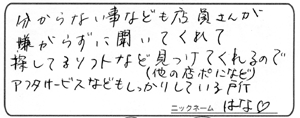 分からない事なども店員さんが
嫌がらずに聞いてくれて
探してるソフトなど見つけてくれるので
(他の店ポになど)
アフタサービスなどもしっかりしている所
ニックネーム はな♡